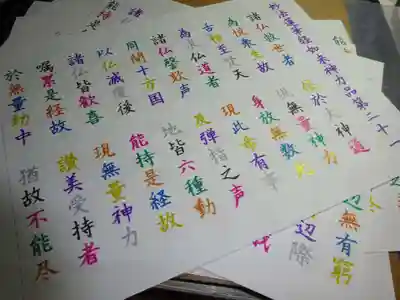 妙法蓮華経如来神力品第二十一
諸仏救世者 住於大神通
為悦衆生故 現無量神力
舌相至梵天 身放無数光
為求仏道者 現此希有事
諸仏謦欬声 及弾指之声
周聞十方国 地皆六種動
以仏滅度後 能持是経故
諸仏皆歓喜 現無量神力
嘱累是経故 讃美受持者
於無量劫中 猶故不能尽
辺無有窮
辺際